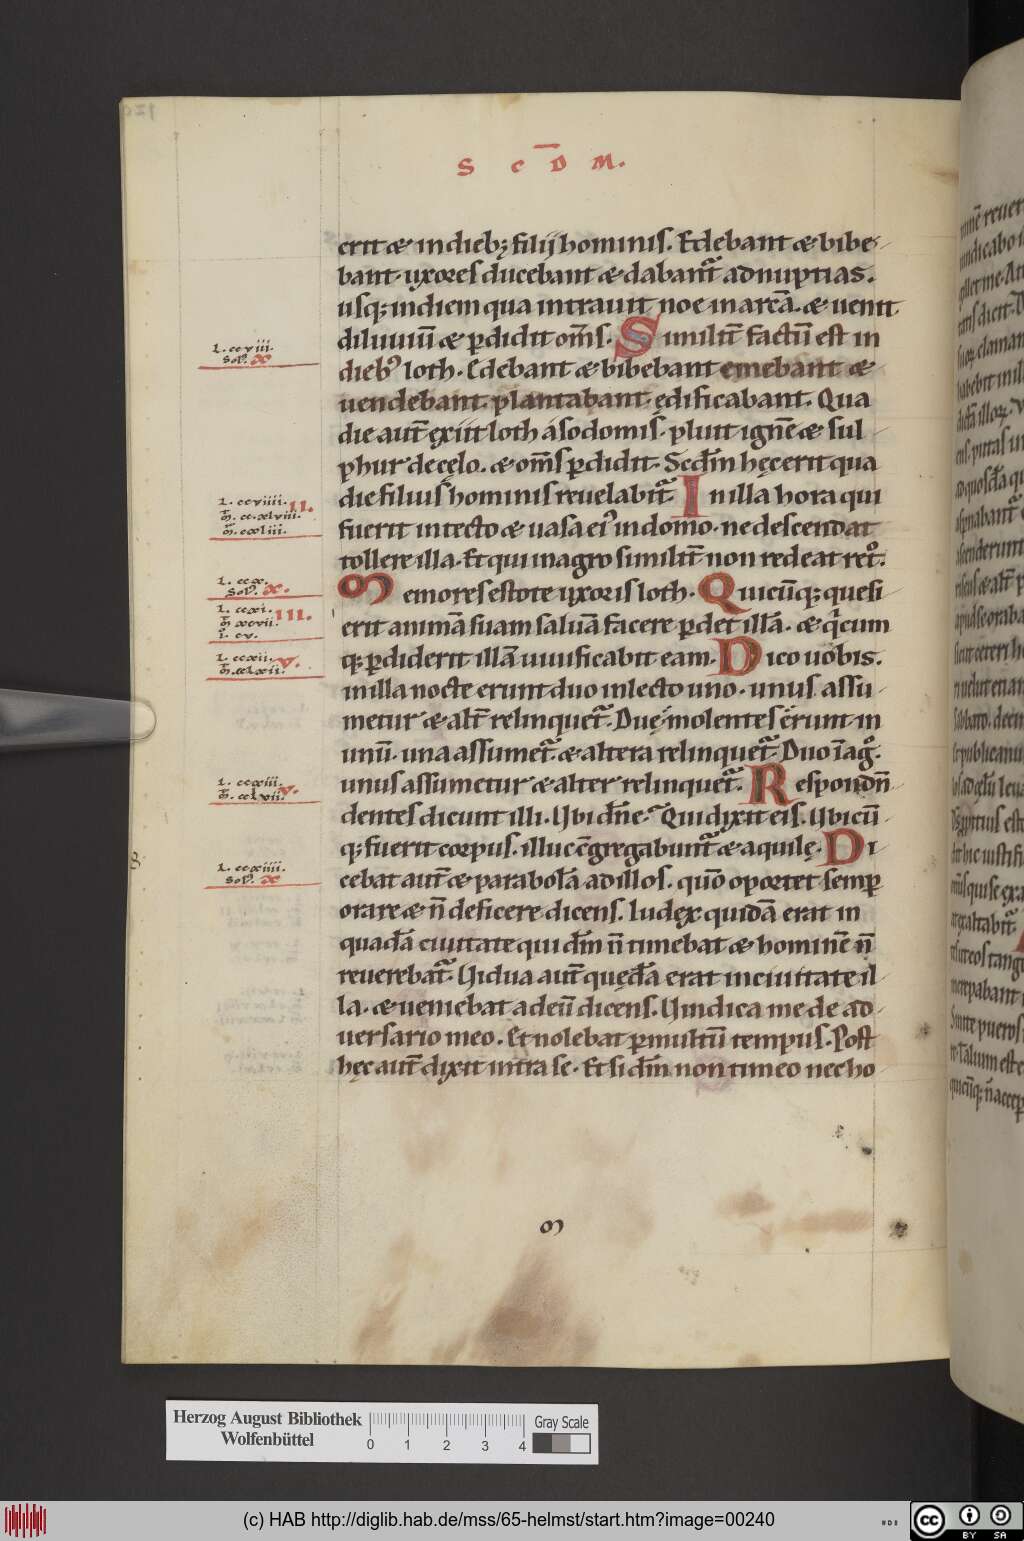 S c̄ D M.
erit & in dieb; filij hominis. Edebant & bibe
bant. uxores ducebant & dabant̃ ad nuptias.
usq; in diem qua intrauit noe in arcā. & uenit
diluuiū & p̄didit om̄s. Similit̃ factū est in
dieb⁹ loth. Edebant & bibebant emebant &
uendebant. plantabant. ędificabant. Qua
die aut̃ exiit loth a sodomis. pluit ignē & sul
phur de cęlo. & om̄s p̄didit. Scdm̄ hęc erit qua
die filius hominis reuelabit̃. In illa hora qui
fuerit in tecto & uasa ei⁹ in domo. ne descendat
tollere illa. Et qui in agro similit̃ non redeat ret°.
Memores estote uxoris loth. Quicūq; quesi
erit animā suam saluā facere p̄det illā. & q̇cum
q; p̄diderit illā uiuificabit eam. Dico uobis.
in illa nocte erunt duo in lecto uno. unus assu
metur & alt̃ relinquet̃. Duę molentes erunt in
unū. una assumet̃. & altera relinquet̃. Duo ī ag°.
unus assumetur & alter relinquet̃. Respondn̄
dentes dicunt illi. Ubi dn̄e. Qui dixit eis. Ubicū
q; fuerit corpus. illuc cōgregabunt̃ & aquilę. Di
cebat aut̃ & parabolā ad illos. quō oportet semp̄
orare & n̄ deficere dicens. Iudex quidā erat in
quadā ciuitate qui dm̄ n̄ timebat & hominē n̄
reuerebat̃. Uidua aut̃ quędā erat in ciuitate il
la. & ueniebat ad eū dicens. Uindica me de ad
uersario meo. Et nolebat p̄ multū tempus. Post
hęc aut̃ dixit intra se. Et si dm̄ non timeo nec ho
L. ccviii.
Sol'. x
L. ccviiii. II.
m̄. cc.xlviii.
m̄. cxliii.
L. ccx.
Sol'. x.
L. ccxi. III.
m̄. xcvii.
i. cv.
L. ccxii. v.
m̄. cclxii.
L. ccxiii. v.
m̄. cclvii.
L. ccxiiii.
Sol'. x
m
Herzog August Bibliothek
Wolfenbüttel
0 1 2 3 4
Gray Scale
(c) HAB http://diglib.hab.de/mss/65-helmst/start.htm?image=00240
cc BY SA